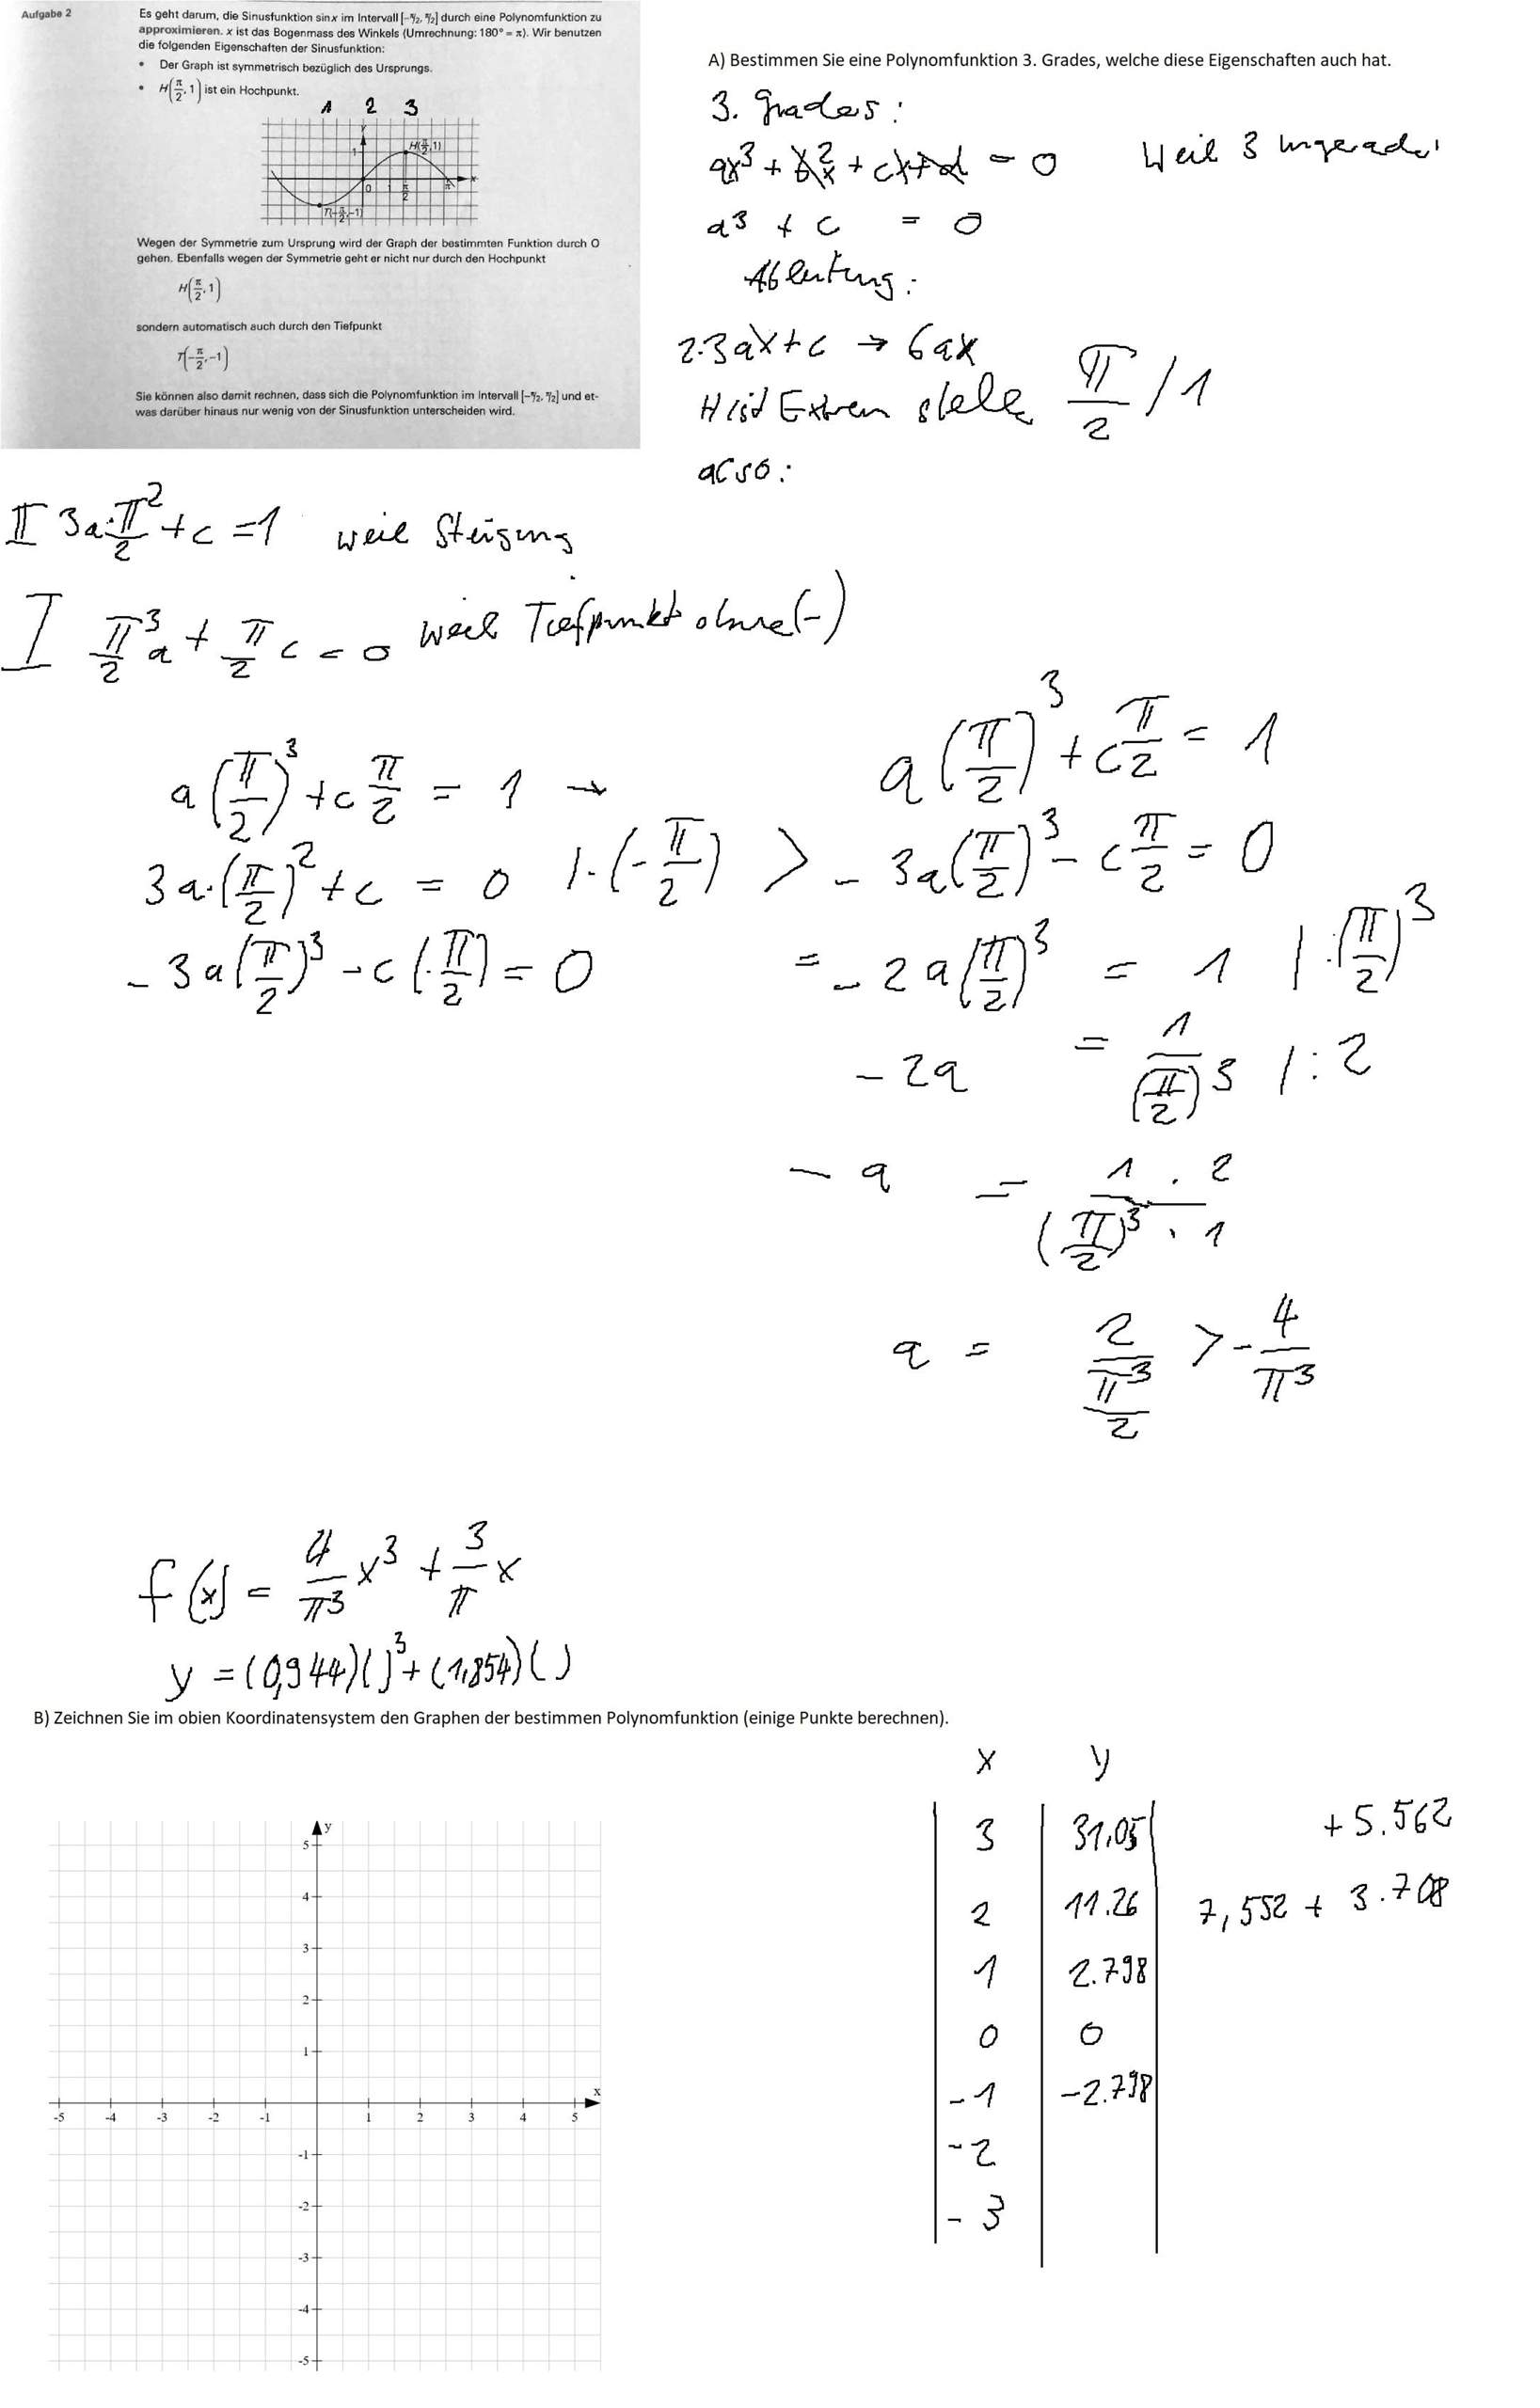 Aufgabe 2
Es geht darum, die Sinusfunktion sin x im Intervall [-π/2, π/2] durch eine Polynomfunktion zu
approximieren. x ist das Bogenmass des Winkels (Umrechnung: 180° = π). Wir benutzen
die folgenden Eigenschaften der Sinusfunktion:
• Der Graph ist symmetrisch bezüglich des Ursprungs.
• H(π/2, 1) ist ein Hochpunkt.
1 2 3
y
1
H(π/2, 1)
0 1 π/2 π x
T(-π/2, -1)
Wegen der Symmetrie zum Ursprung wird der Graph der bestimmten Funktion durch O
gehen. Ebenfalls wegen der Symmetrie geht er nicht nur durch den Hochpunkt
H(π/2, 1)
sondern automatisch auch durch den Tiefpunkt
T(-π/2, -1)
Sie können also damit rechnen, dass sich die Polynomfunktion im Intervall [-π/2, π/2] und et-
was darüber hinaus nur wenig von der Sinusfunktion unterscheiden wird.
A) Bestimmen Sie eine Polynomfunktion 3. Grades, welche diese Eigenschaften auch hat.
3. Grades:
ax³ + bx² + cx + d = 0 Weil 3 ungerade
a³ + c = 0
Ableitung:
2·3ax+c → 6ax
H ist Extrem stelle π/2 / 1
also:
II 3a·π/2² + c = 1 weil Steigung
I π/2³ a + π/2 c = 0 weil Tiefpunkt ohne (-)
a(π/2)³ + c π/2 = 1 →
3a·(π/2)² + c = 0 |·(-π/2) >
-3a(π/2)³ - c(·π/2) = 0
a(π/2)³ + c π/2 = 1
- 3a(π/2)³ - c π/2 = 0
= -2a(π/2)³ = 1 | :(π/2)³
-2a = 1/(π/2)³ | : 2
- a = 1 · 2/(π/2)³ · 1
a = 2/(π³/2) > - 4/π³
f(x) = 4/π³ x³ + 3/π x
y = (0,944)( )³ + (1,854)( )
B) Zeichnen Sie im obien Koordinatensystem den Graphen der bestimmen Polynomfunktion (einige Punkte berechnen).
y
5
4
3
2
1
x
-5 -4 -3 -2 -1 1 2 3 4 5
-1
-2
-3
-4
-5
x y
3 31,05 + 5.562
2 11.26 7,552 + 3.708
1 2.798
0 0
-1 -2.798
-2
-3